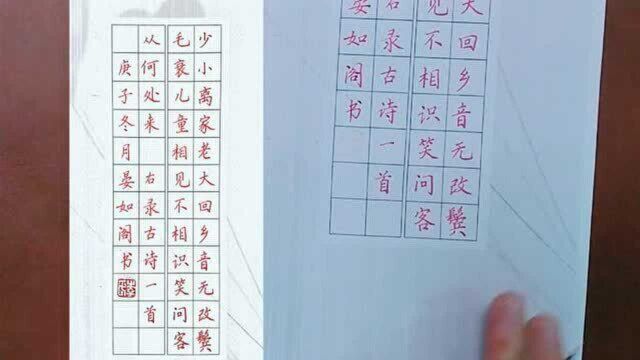 少小离家老大回乡音无改鬓
毛衰儿童相见不相识笑问客
从何处来 右录古诗一首
庚子冬月晏如阁书
大回乡音无改鬓
见不相识笑问客
右录古诗一首
晏如阁书